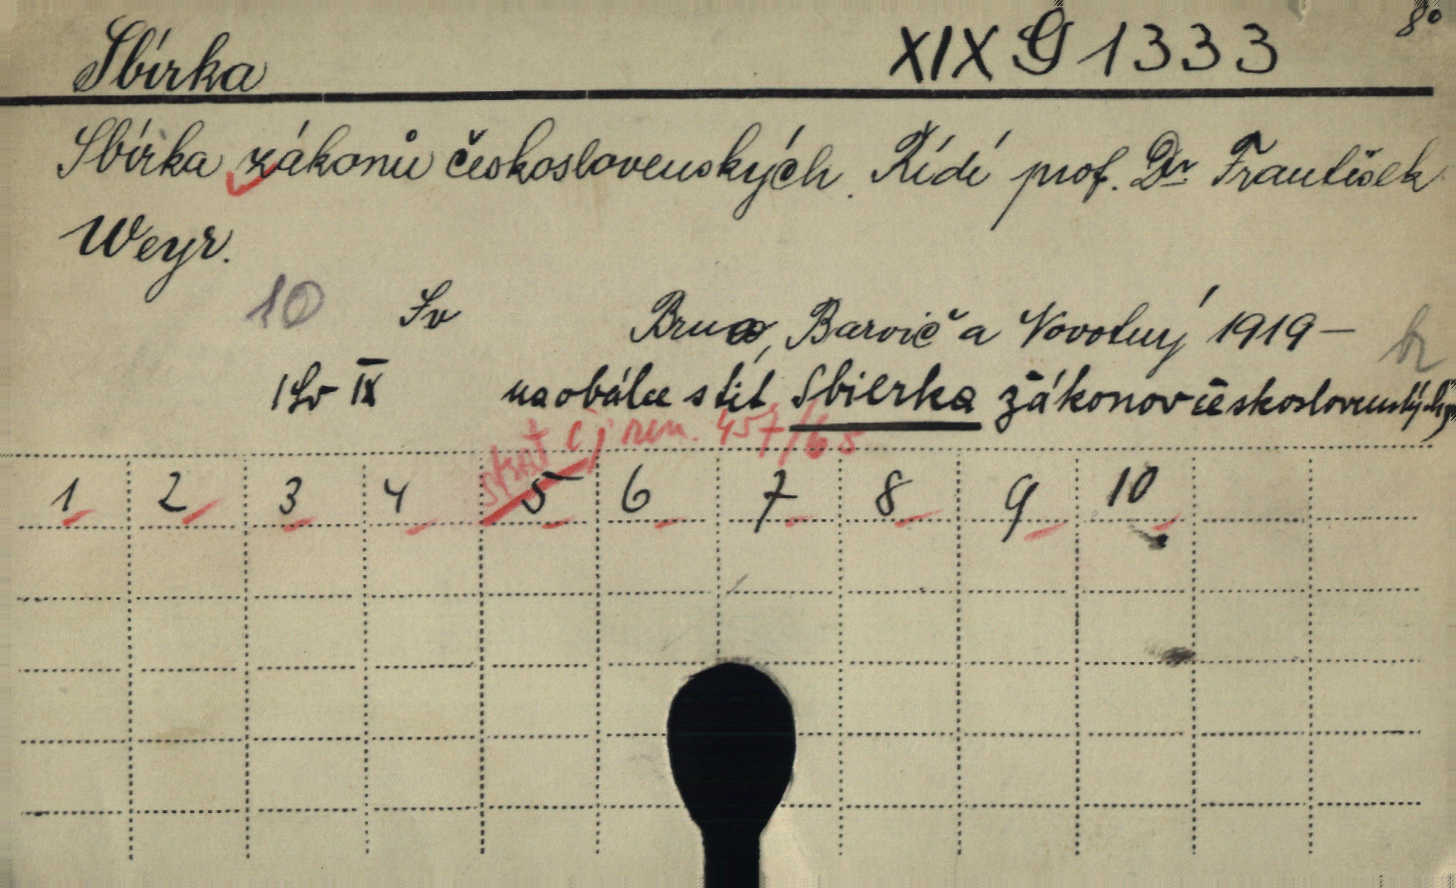 Sbírka XIX G 1333 8°
Sbírka zákonů československých. Řídí prof. Dr František
Weyr.
10 Sv Brno, Barvič a Novotný 1919 –
1 Sv IX na obálce s tit Sbierka zákonov československých
ztrát čj rev. 457/65
1 2 3 4 5 6 7 8 9 10